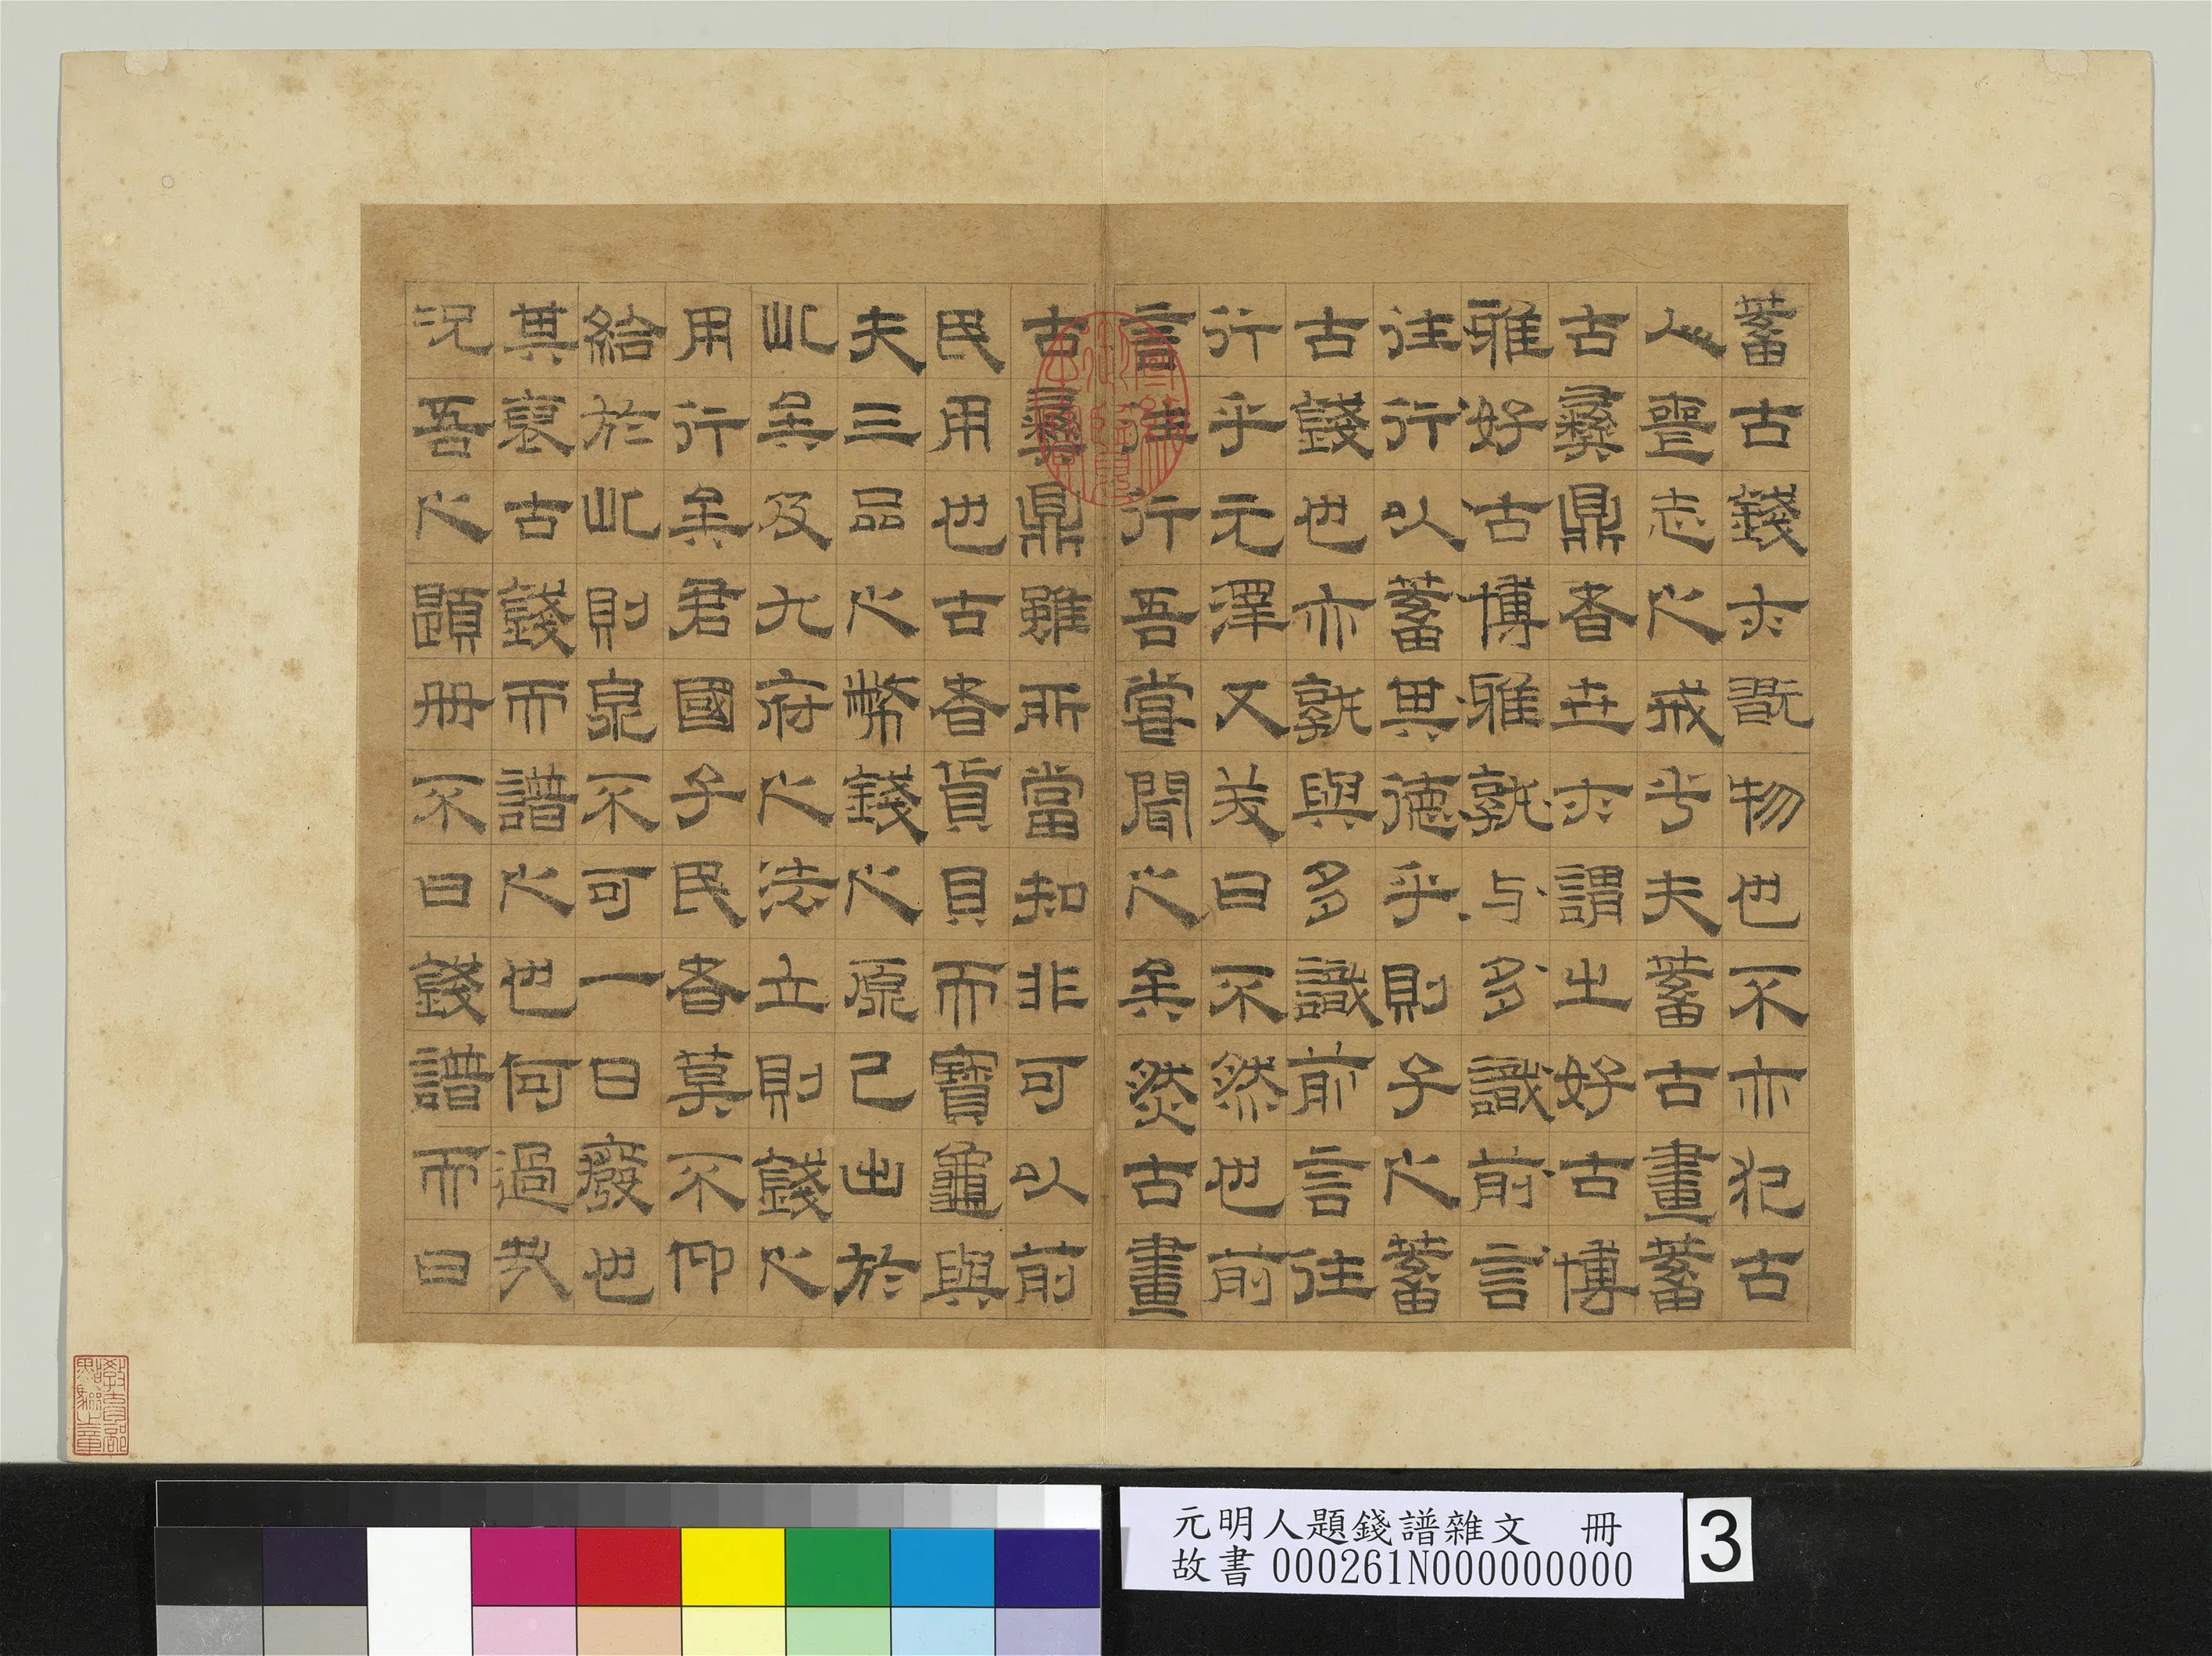 蓄古錢尒既物也不亦犯古
人喪志之戒乎夫蓄古畫蓄
古彝鼎者世尒謂之好古博
雅好古博雅孰与多識前言
往行以蓄其德乎則子之蓄
古錢也亦孰與多識前言往
行乎元澤又笑曰不然也前
言往行吾嘗聞之矣然古畫
古彝鼎雖所當知非可以前
民用也古者貨貝而寶龜與
夫三品之幣錢之原已出於
此矣及九府之法立則錢之
用行矣君國子民者莫不仰
給於此則泉不可一日廢也
其裒古錢而譜之也何過哉
況吾之題冊不曰錢譜而曰
教育部點驗之章
元明人題錢譜雜文 冊
故書 000261N000000000
3